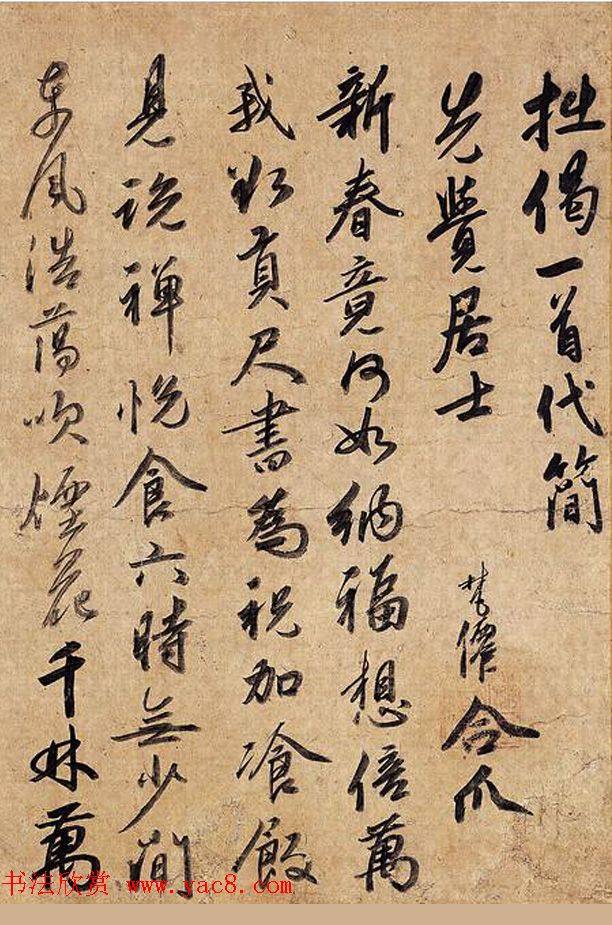 拙偈一首代簡
先覺居士
梵僊合爪
新春竟何如納福想倍萬
我欲貢尺書為祝加飡飯
見說禪悅食六時無少間
東風浩蕩吹煙花千林萬
书法欣赏 www.yac8.com